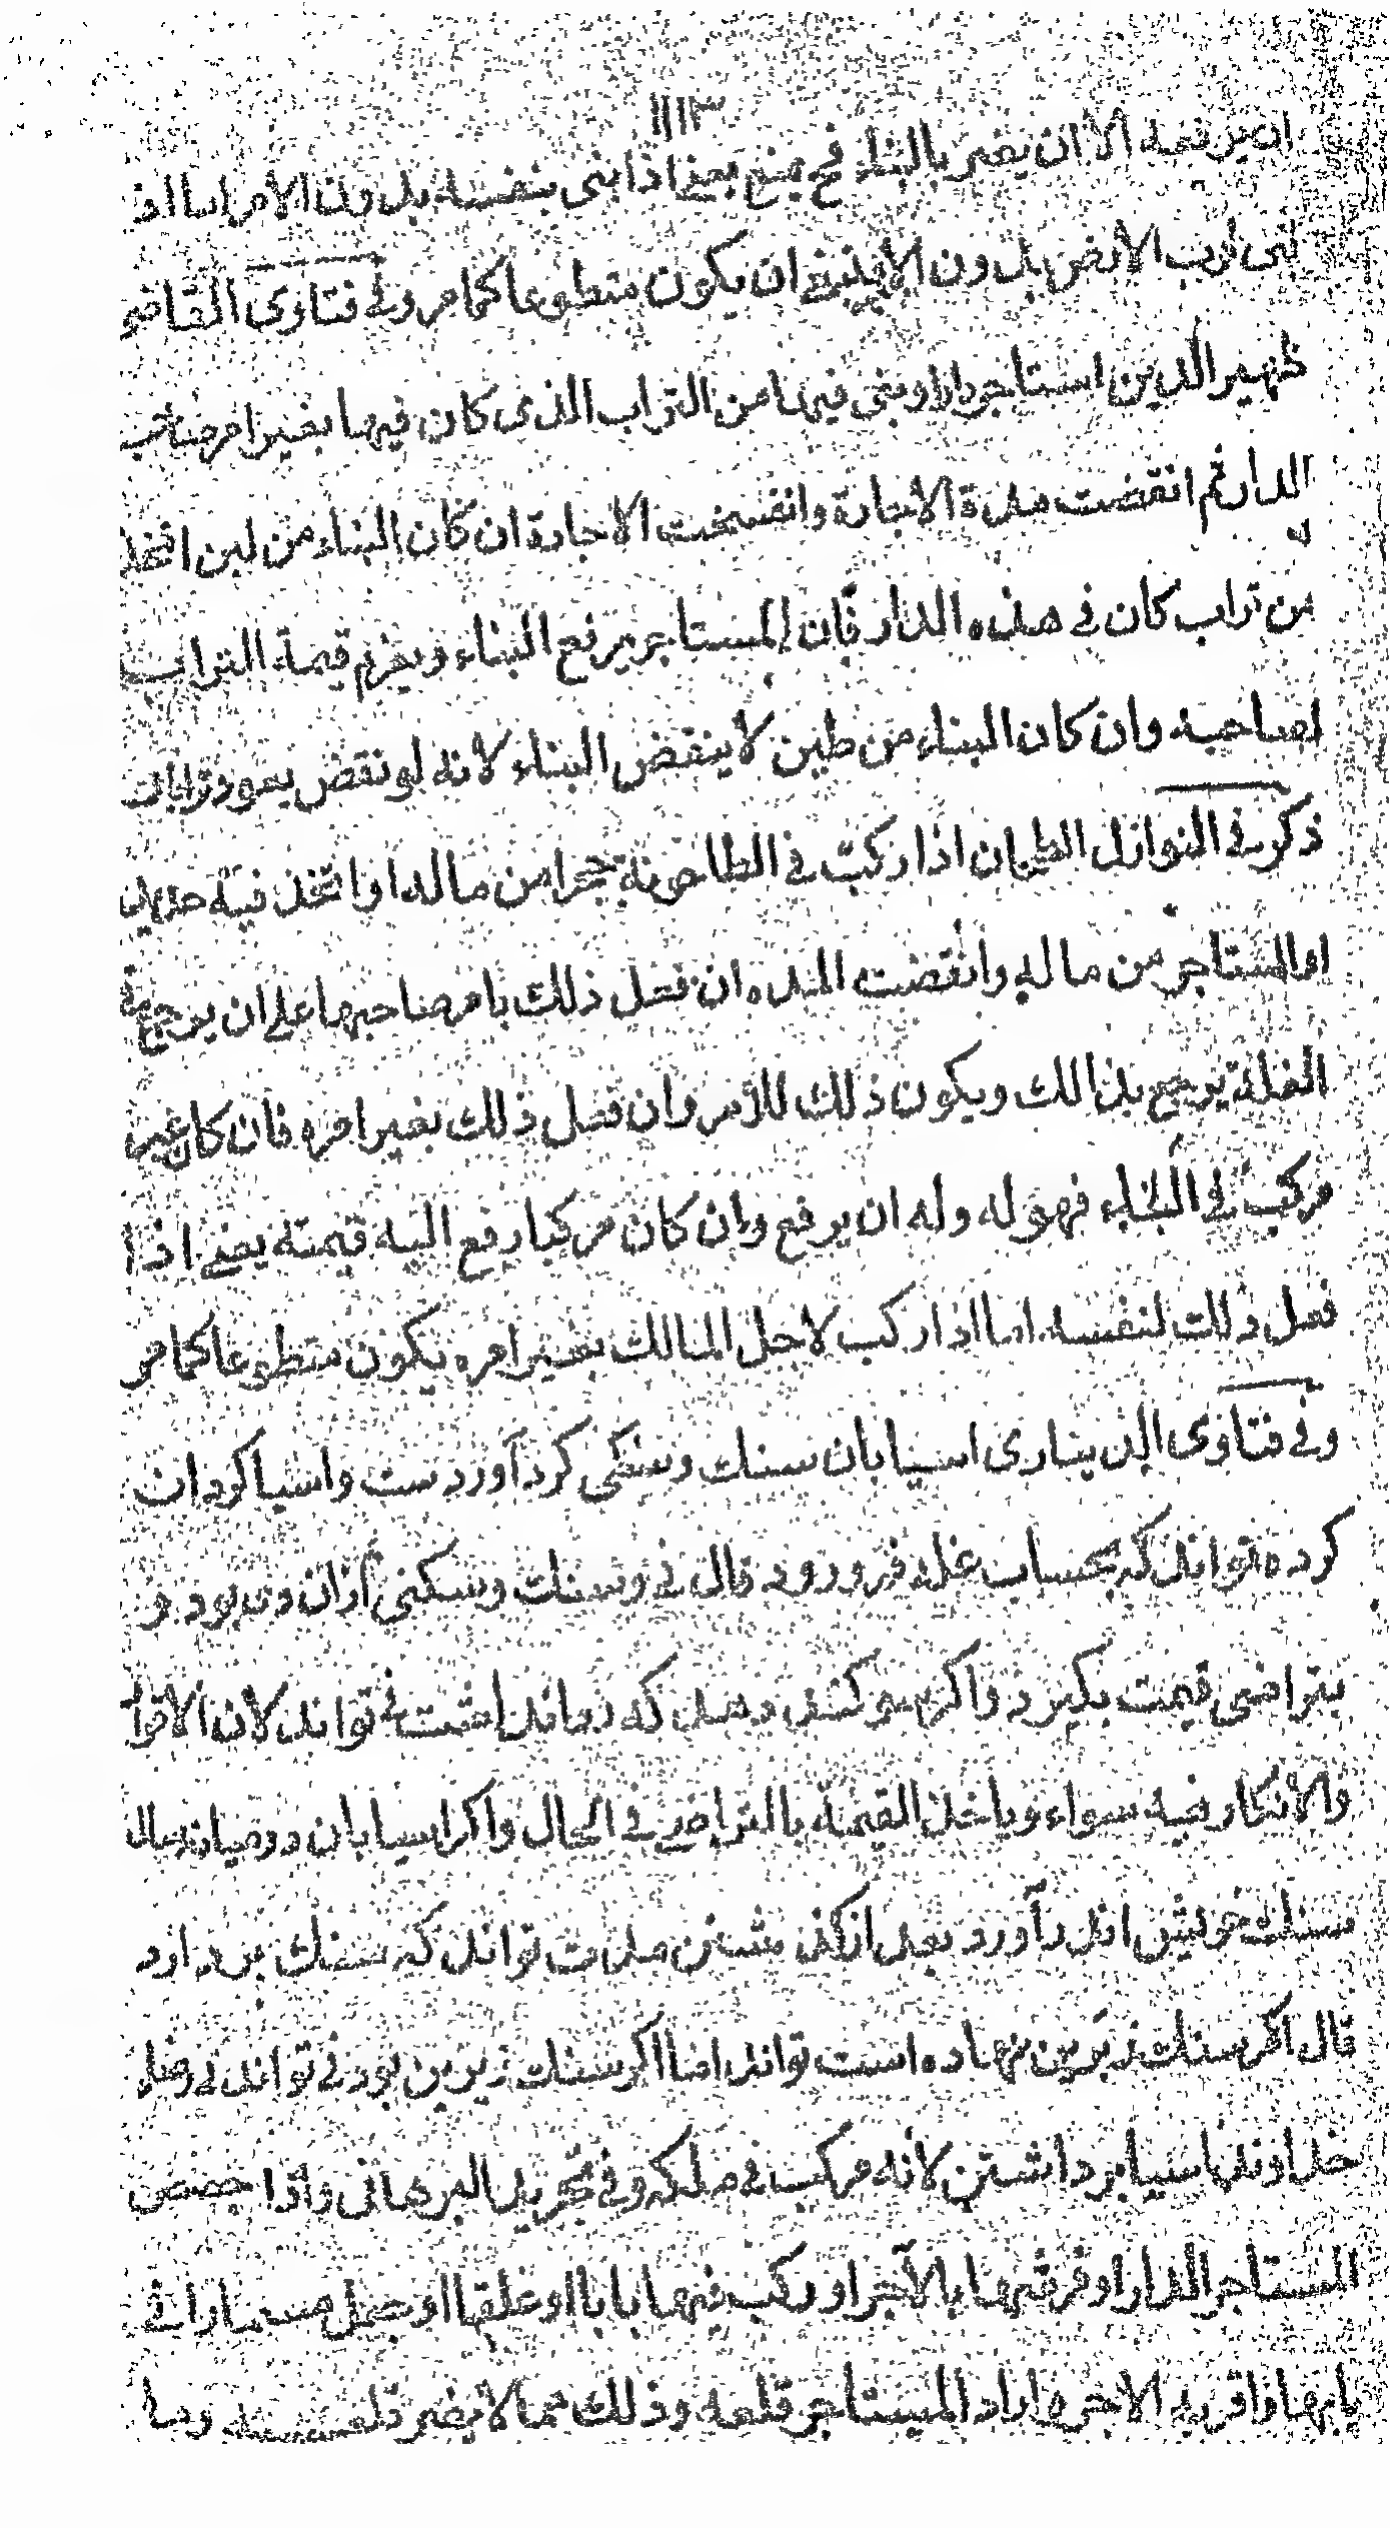 ١١١٣
ان يرفعه الا ان يضر بالبناء فح يمنع يعني اذا بنى بنفسه بدون الامر اما اذا
بنى لرب الارض بدون الاذن ينبغي ان يكون متطوعا كما مر وفي فتاوى القاضي
ظهير الدين استاجر دارا وبنى فيها من التراب الذي كان فيها بغير امر صاحب
الدار ثم انقضت مدة الاجارة وانفسخت الاجارة ان كان البناء من لبن اتخذ
من تراب كان في هذه الدار فان للمستاجر يرفع البناء ويغرم قيمة التراب
لصاحبه وان كان البناء من طين لا ينقض البناء لانه لو نقض يعود ترابا
ذكر في النوازل الطحان اذا ركب في الطاحونة حجرا من ماله او اتخذ فيه حديدا
او المستاجر من ماله وانقضت المده ان فعل ذلك بامر صاحبها على ان يرجع في
الغلة يرجع بذالك ويكون ذلك للآمر وان فعل ذلك بغير امره فان كان غير
مركب في البناء فهو له وله ان يرفع وان كان مركبا رفع اليه قيمته يعني اذا
فعل ذلك لنفسه اما اذا ركب لاجل المالك بغير امره يكون متطوعا كما مر
وفي فتاوى الديناري اسيابان سنك وسنكى كرد آورد ست واسيا كردان
كرده تواند كه بحساب غله فرورود قال ني وسنك وسكنى ازان وى بود و
بتراضى قيمت بكيرد واكر سوكند دهد كه نماند است ني تواند لان الاقرار
والانكار فيه سواء وياخذ القيمة بالتراضي في الحال واكر اسيابان درميانه سال
سنك خويش اندر آورد بعد از كذشتن مدت تواند كه سنك بردارد
قال اكر سنك زبرين نهاده است تواند اما اكر سنك زيرين بود ني تواند بي رضاء
خداوند اسيا برداشتن لانه مركب في ملكه وفي تجريد البرهاني واذا جصص
المستاجر الدار او فرشها بالآجر او ركب فيها بابا او غلقا او جعل مسمارا في
بابها واقر به الآجر واراد المستاجر قلعه وذلك مما لا يضر قلعه وما